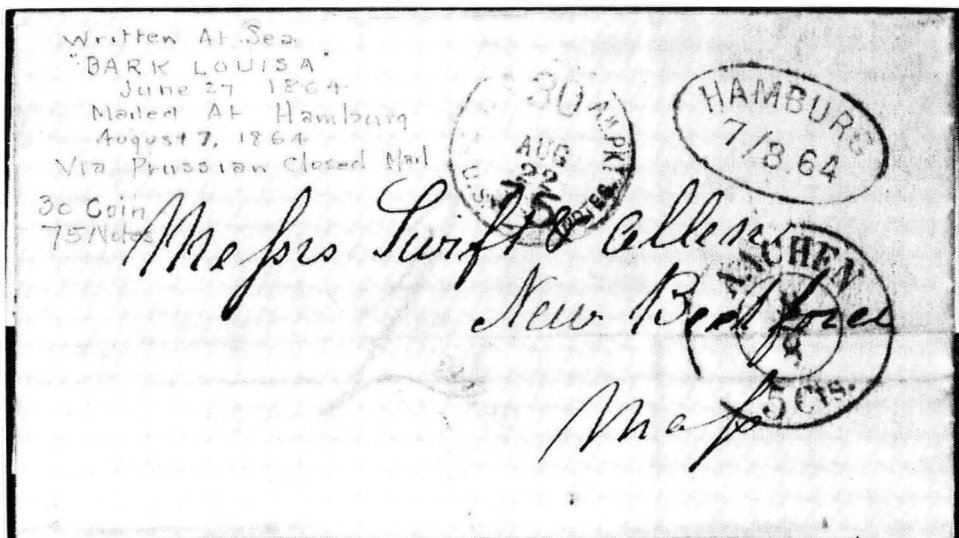 Written At Sea
"BARK LOUISA"
June 27 1864
Mailed At Hamburg
August 7, 1864
Via Prussian Closed Mail
30 Coin
75 Notes
30
AUG
22
75
HAMBURG
7/8.64
Messrs Swift & Allen
New Bedford
Mass
AACHEN
5 Cts.